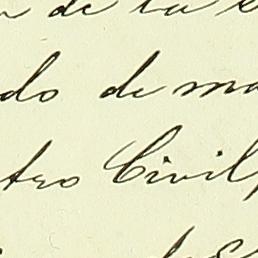 de la
do de ma
tro Civil,